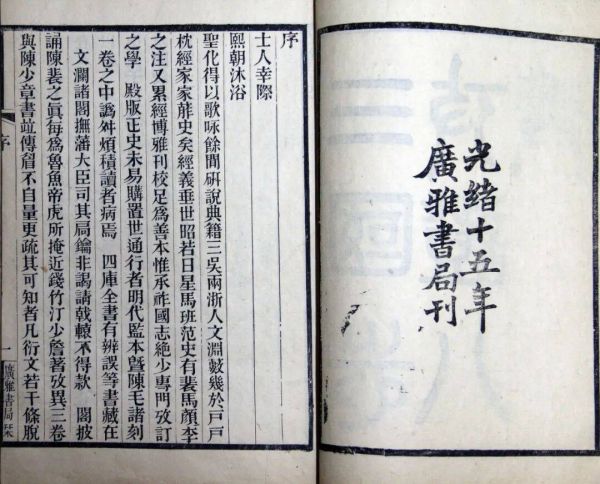 光緒十五年
廣雅書局刊
序
士人幸際
熙朝沐浴
聖化得以歌咏餘間硏說典籍三吳兩浙人文淵藪幾於戶戶
枕經家家葄史矣經義垂世昭若日星馬班范史有裴馬顏李
之注又累經博雅刊校足爲善本惟承祚國志絕少專門攷訂
之學　殿版正史未易購置世通行者明代監本曁陳毛諸刻
一卷之中譌舛煩積讀者病焉　四庫全書有辨誤等書藏在
文瀾諸閣撫藩大臣司其局鑰非謁請戟轅不得款　閣披
誦陳裴之眞每爲魯魚帝虎所掩近錢竹汀少詹著攷異三卷
與陳少章書竝傳眘不自量更疏其可知者凡衍文若干條脫
序
一
廣雅書局栞